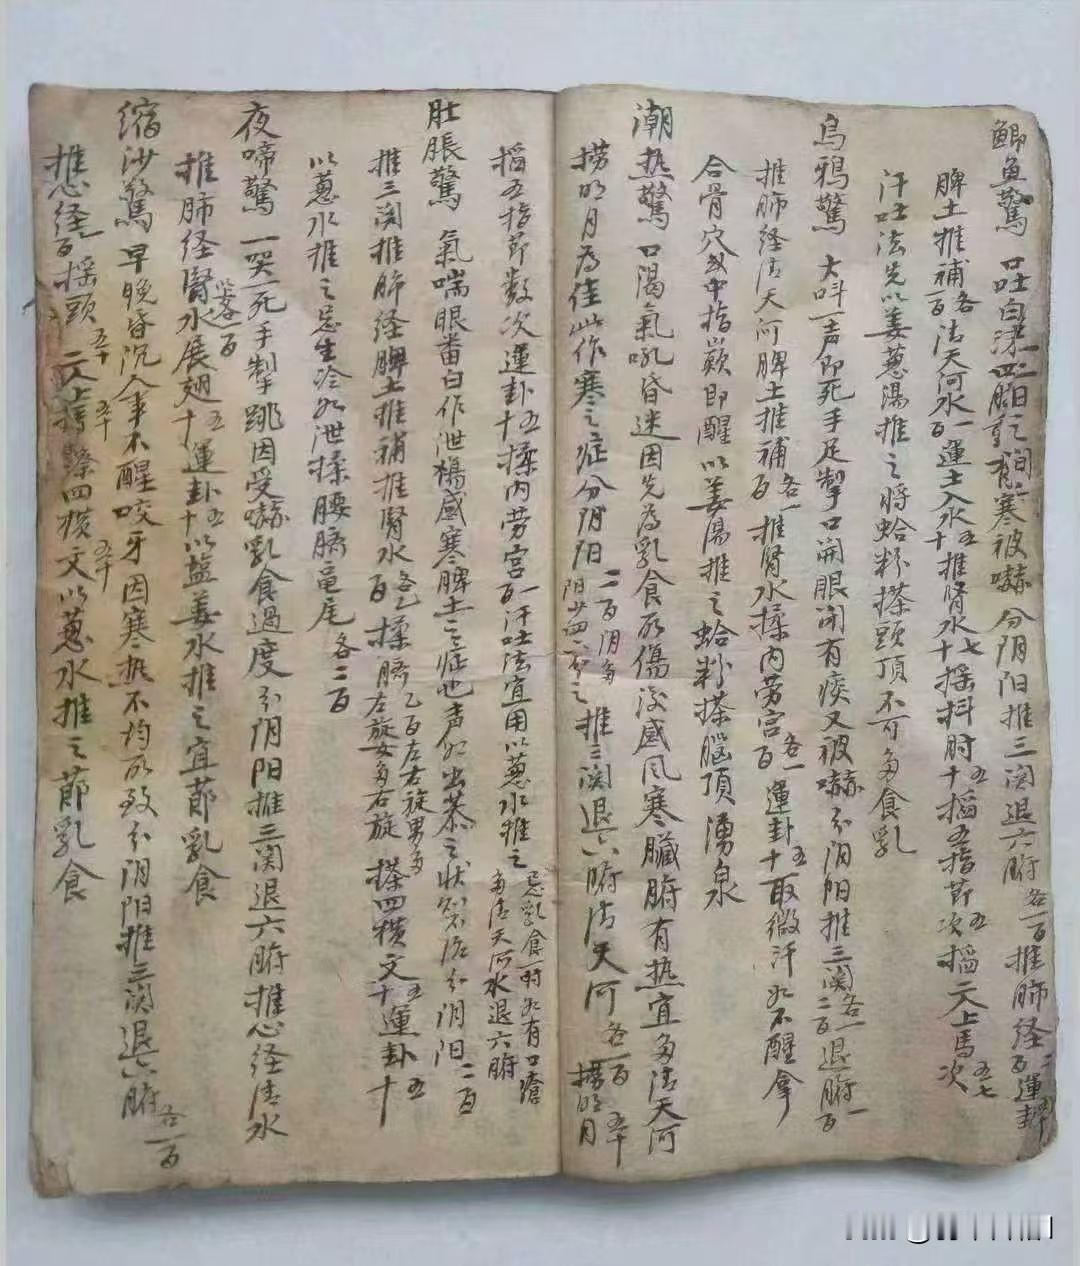 鲫魚驚 口吐白沫四肢 有寒被嚇 分阴阳推三関退六腑各一百推肺经百運卦
脾土推補各一百清天河水一百運土入水五十推腎水七十摇抖肘五十掐五指节五次掐二人上馬七次
汗吐法先以姜葱湯推之將蛤粉搽頭頂不可多食乳
烏鴉驚 大呌一声即死手足掣口開眼闭有痰又被嚇分阴阳推三関各一二百退腑一百
推肺经清天河脾土推補各一百推腎水揉内劳宫各一百運卦五十取微汗如不醒拿
合骨穴 中指 即醒以姜湯推之蛤粉搽腦頂湧泉
潮热驚 口渴氣吼昏迷因先為乳食所傷後感风寒臟腑有热宜多清天河
捞明月為佳此作寒之症分阴阳二百阴多阳少 推三関退六腑清天河各一百捞明月五十
掐五指节数次運卦五十揉内劳宫一百汗吐法宜用以葱水推之忌乳食一时如有口瘡多清天河水退六腑
肚脹驚 氣喘眼番白作泄 感寒脾土之症也声如 之状 治分阴阳二百
推三関推肺经脾土推補推腎水各乙百揉臍乙百左右旋男多左旋女多右旋揉四横文五十運卦五十
以葱水推之忌生冷如泄揉腰臍龟尾各二百
夜啼驚 一哭一死手掣跳因受嚇乳食過度分阴阳推三関退六腑推心经清水
推肺经腎水各一百展翅五十運卦五十以盐姜水推之宜節乳食
缩沙驚 早晚昏沉人事不醒咬牙因寒热不均所致分阴阳推三関退六腑各一百
推心经一百摇頭五十二人上馬五十揉四横文五十以葱水推之節乳食